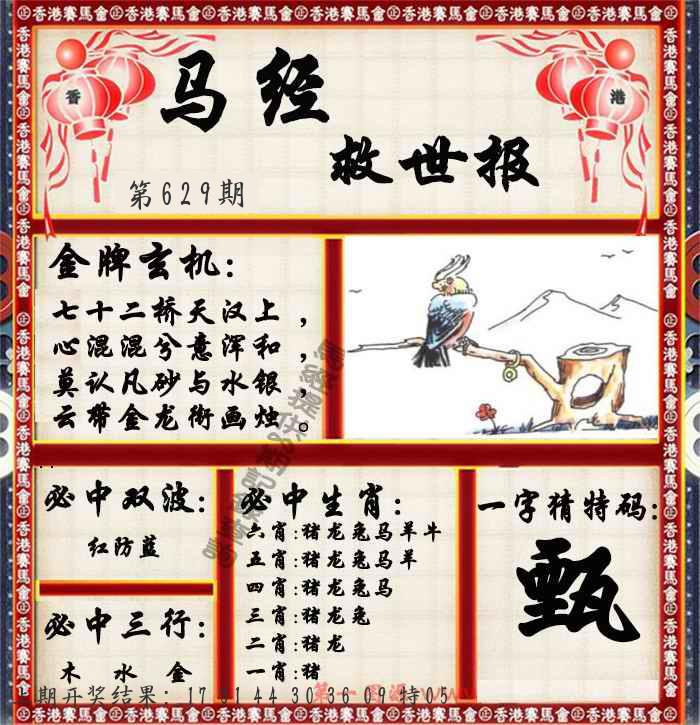 香港賽馬會
香 港
马经
救世报
第629期
金牌玄机:
七十二桥天汉上，
心混混兮意浑和，
莫认凡砂与水银，
云带金龙衔画烛。
必中双波:
红防蓝
必中三行:
木 水 金
必中生肖:
六肖:猪龙兔马羊牛
五肖:猪龙兔马羊
四肖:猪龙兔马
三肖:猪龙兔
二肖:猪龙
一肖:猪
一字猜特码:
甄
期开奖结果: 17 31 44 30 36 09 特05
第一图源